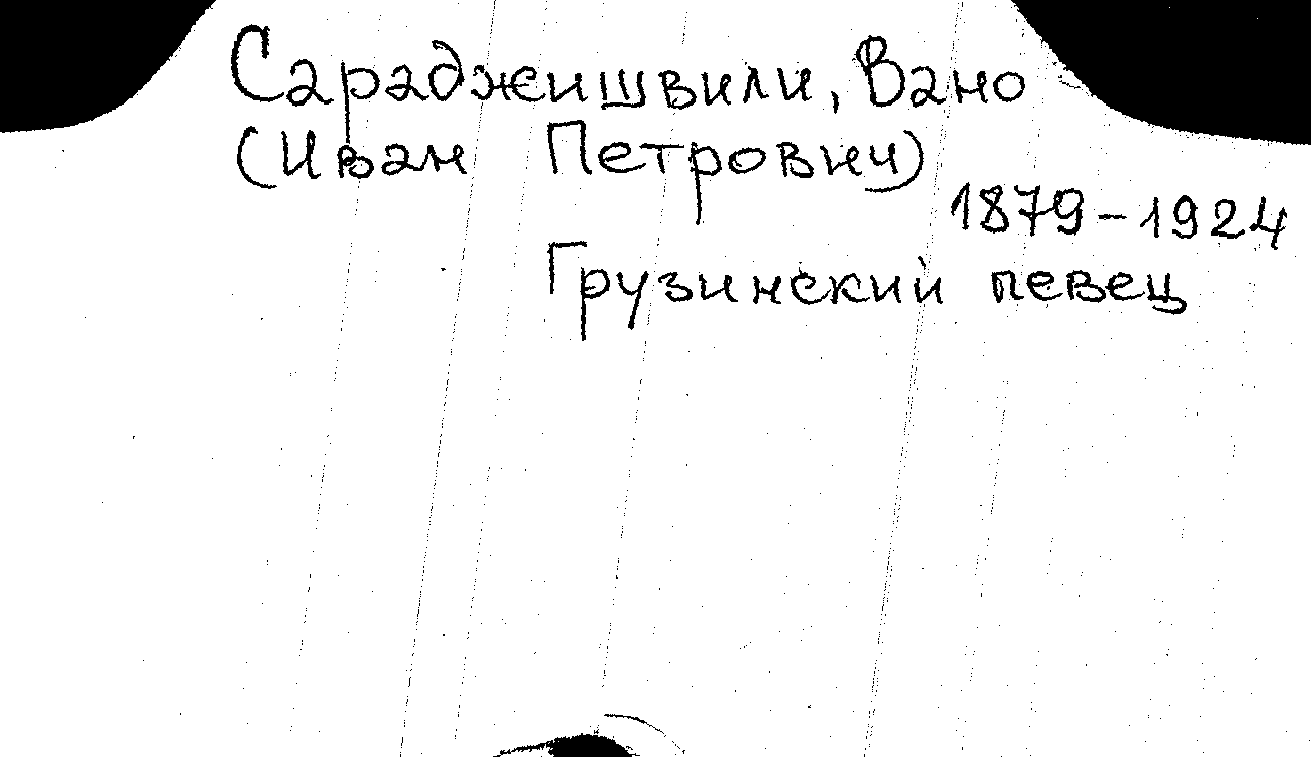 Сараджишвили, Вано
(Иван Петрович)
1879-1924
Грузинский певец